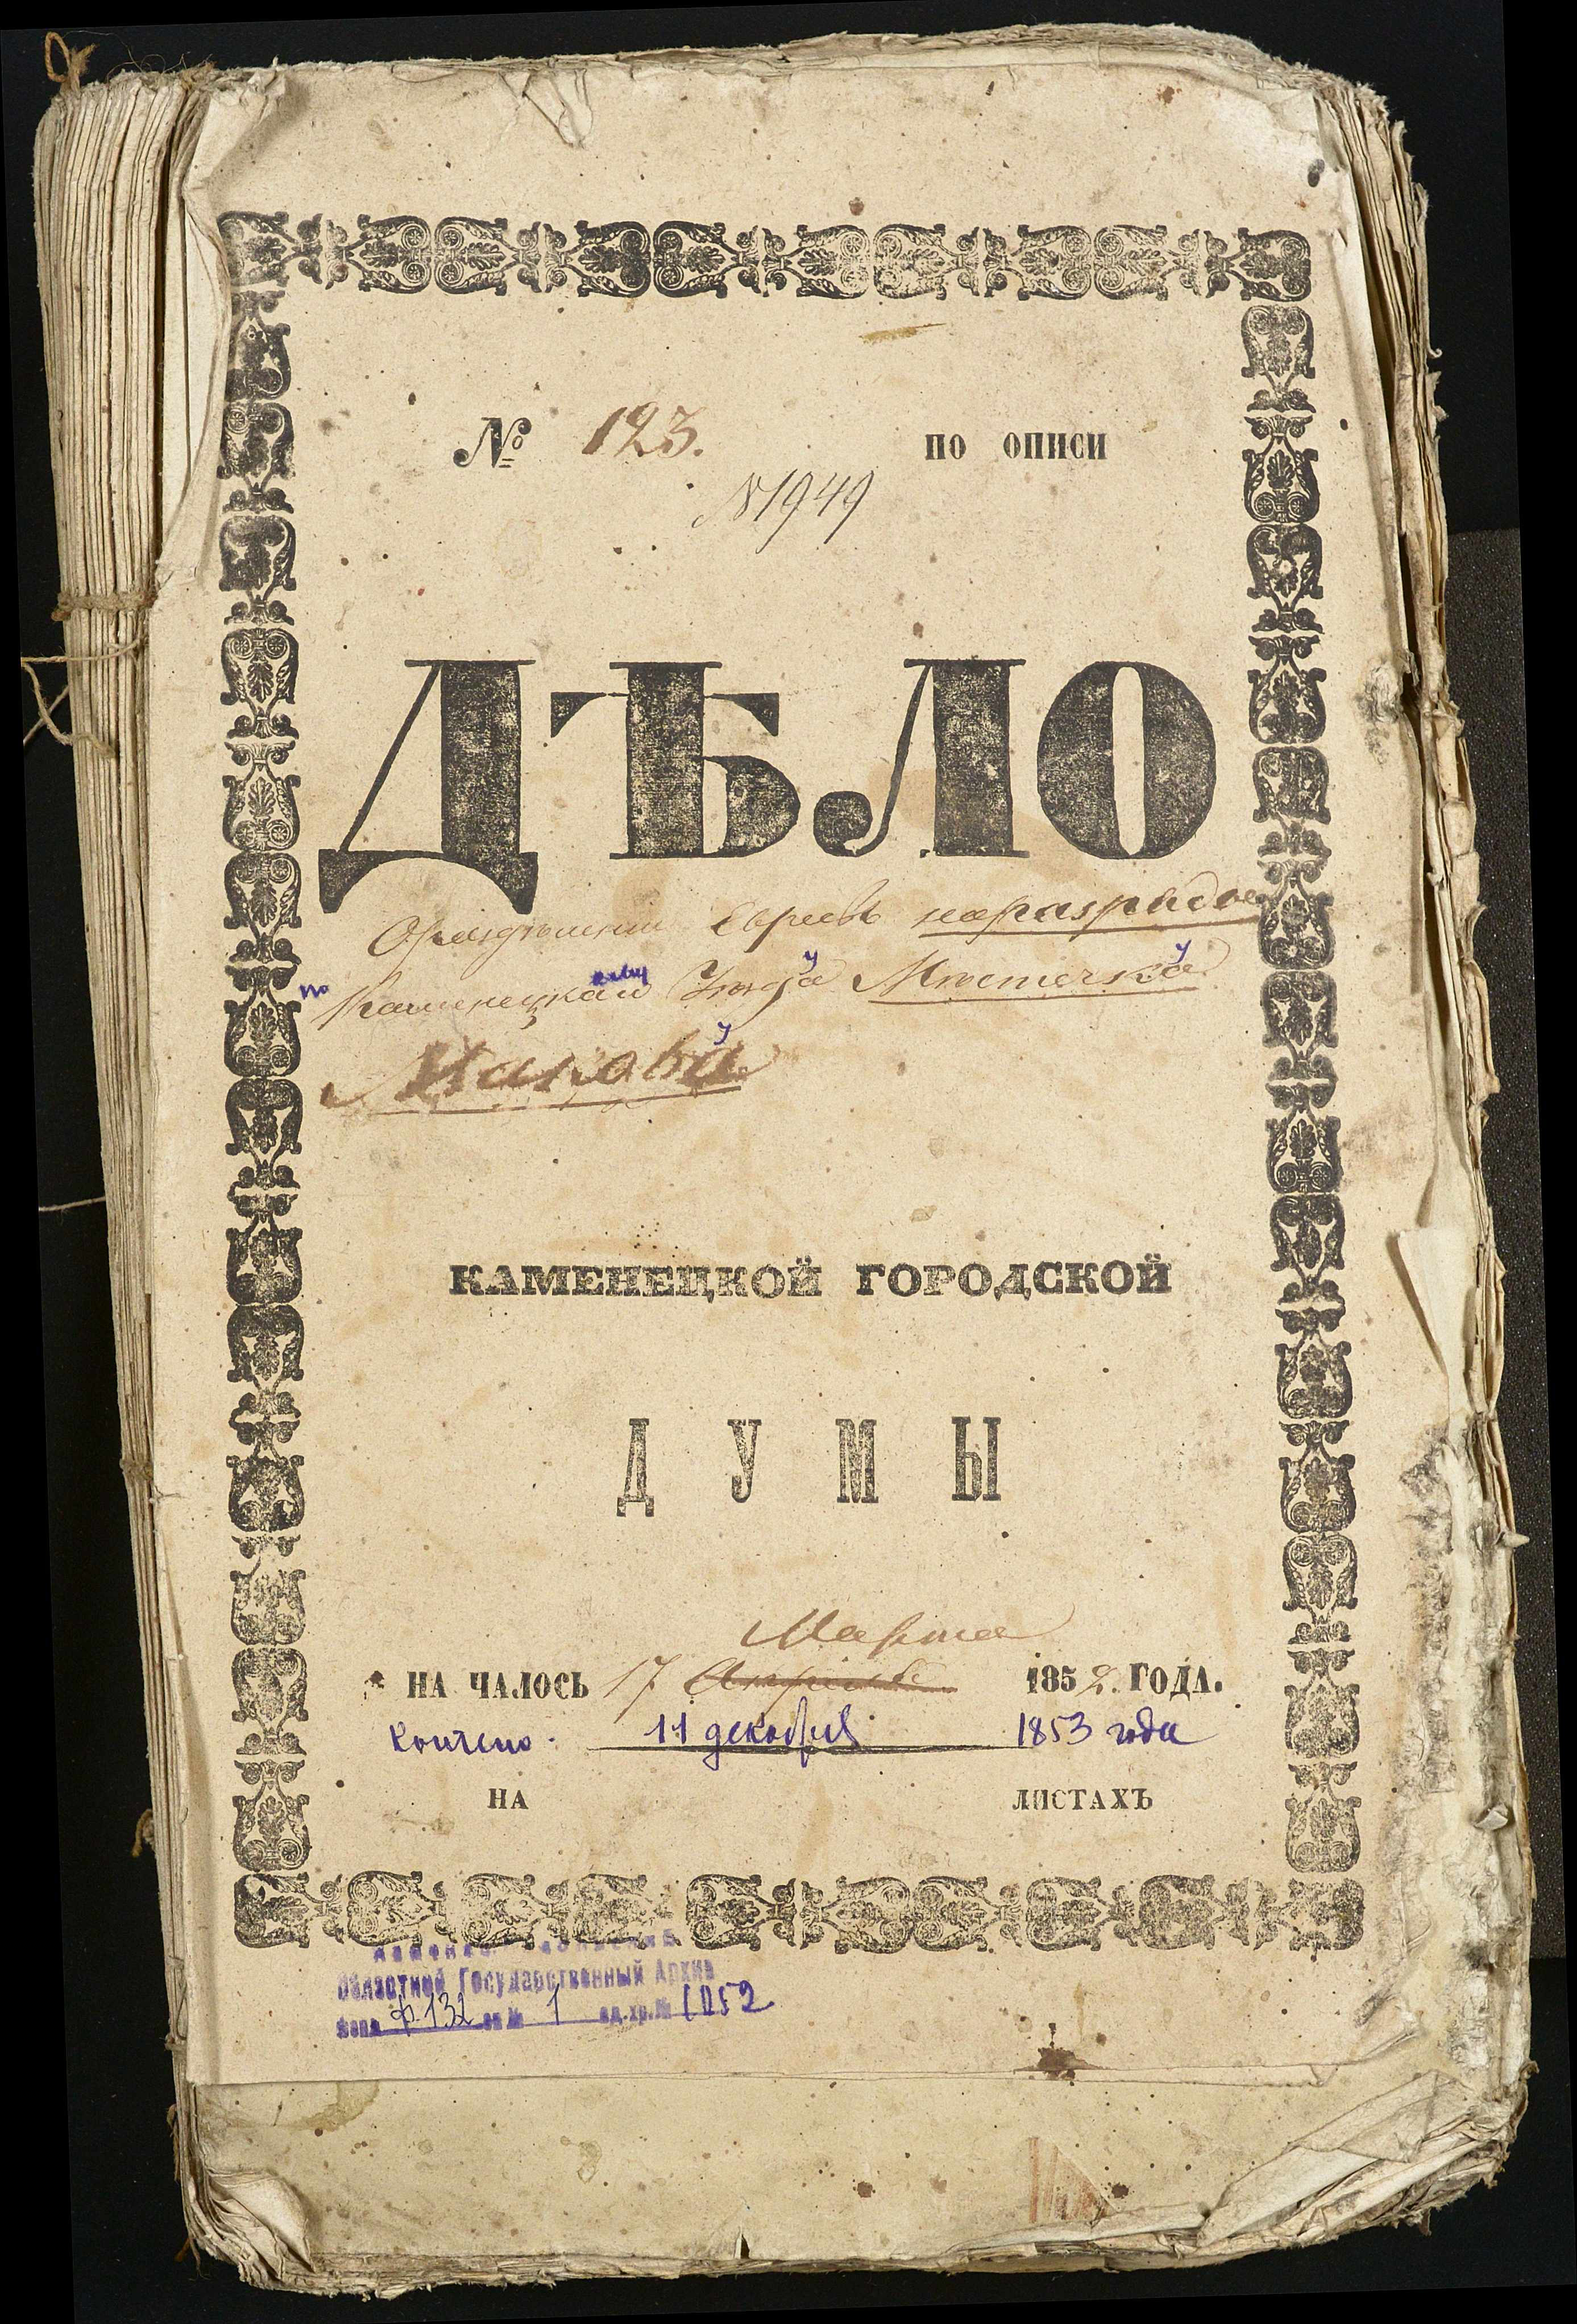 № 123. ПО ОПИСИ
№1949
ДѢЛО
О раздѣленіи Евреевъ на разряды
по Каменецкаго Уѣзда Мѣстечка
Макова
КАМЕНЕЦКОЙ ГОРОДСКОЙ
ДУМЫ
Марта
НА ЧАЛОСЬ 17 Апреля 1852 ГОДА.
Кончено. 11 декабря 1853 года
НА ЛИСТАХЪ
Областной Государственный Архив
Фонд ф. 132 оп № 1 ед.хр.№ 1052